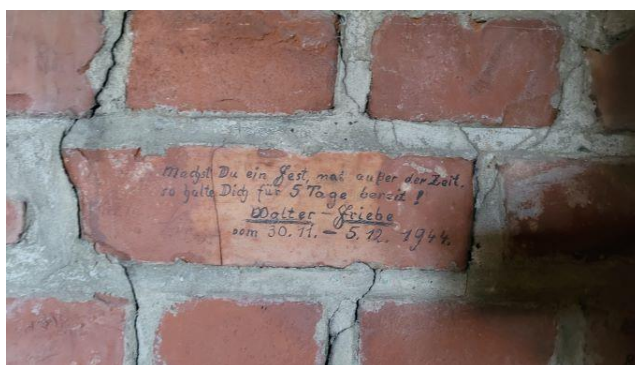 Machst Du ein Fest, mal außer der Zeit,
so halte Dich für 5 Tage bereit !
Walter - Friebe
vom 30. 11. — 5. 12. 1944.